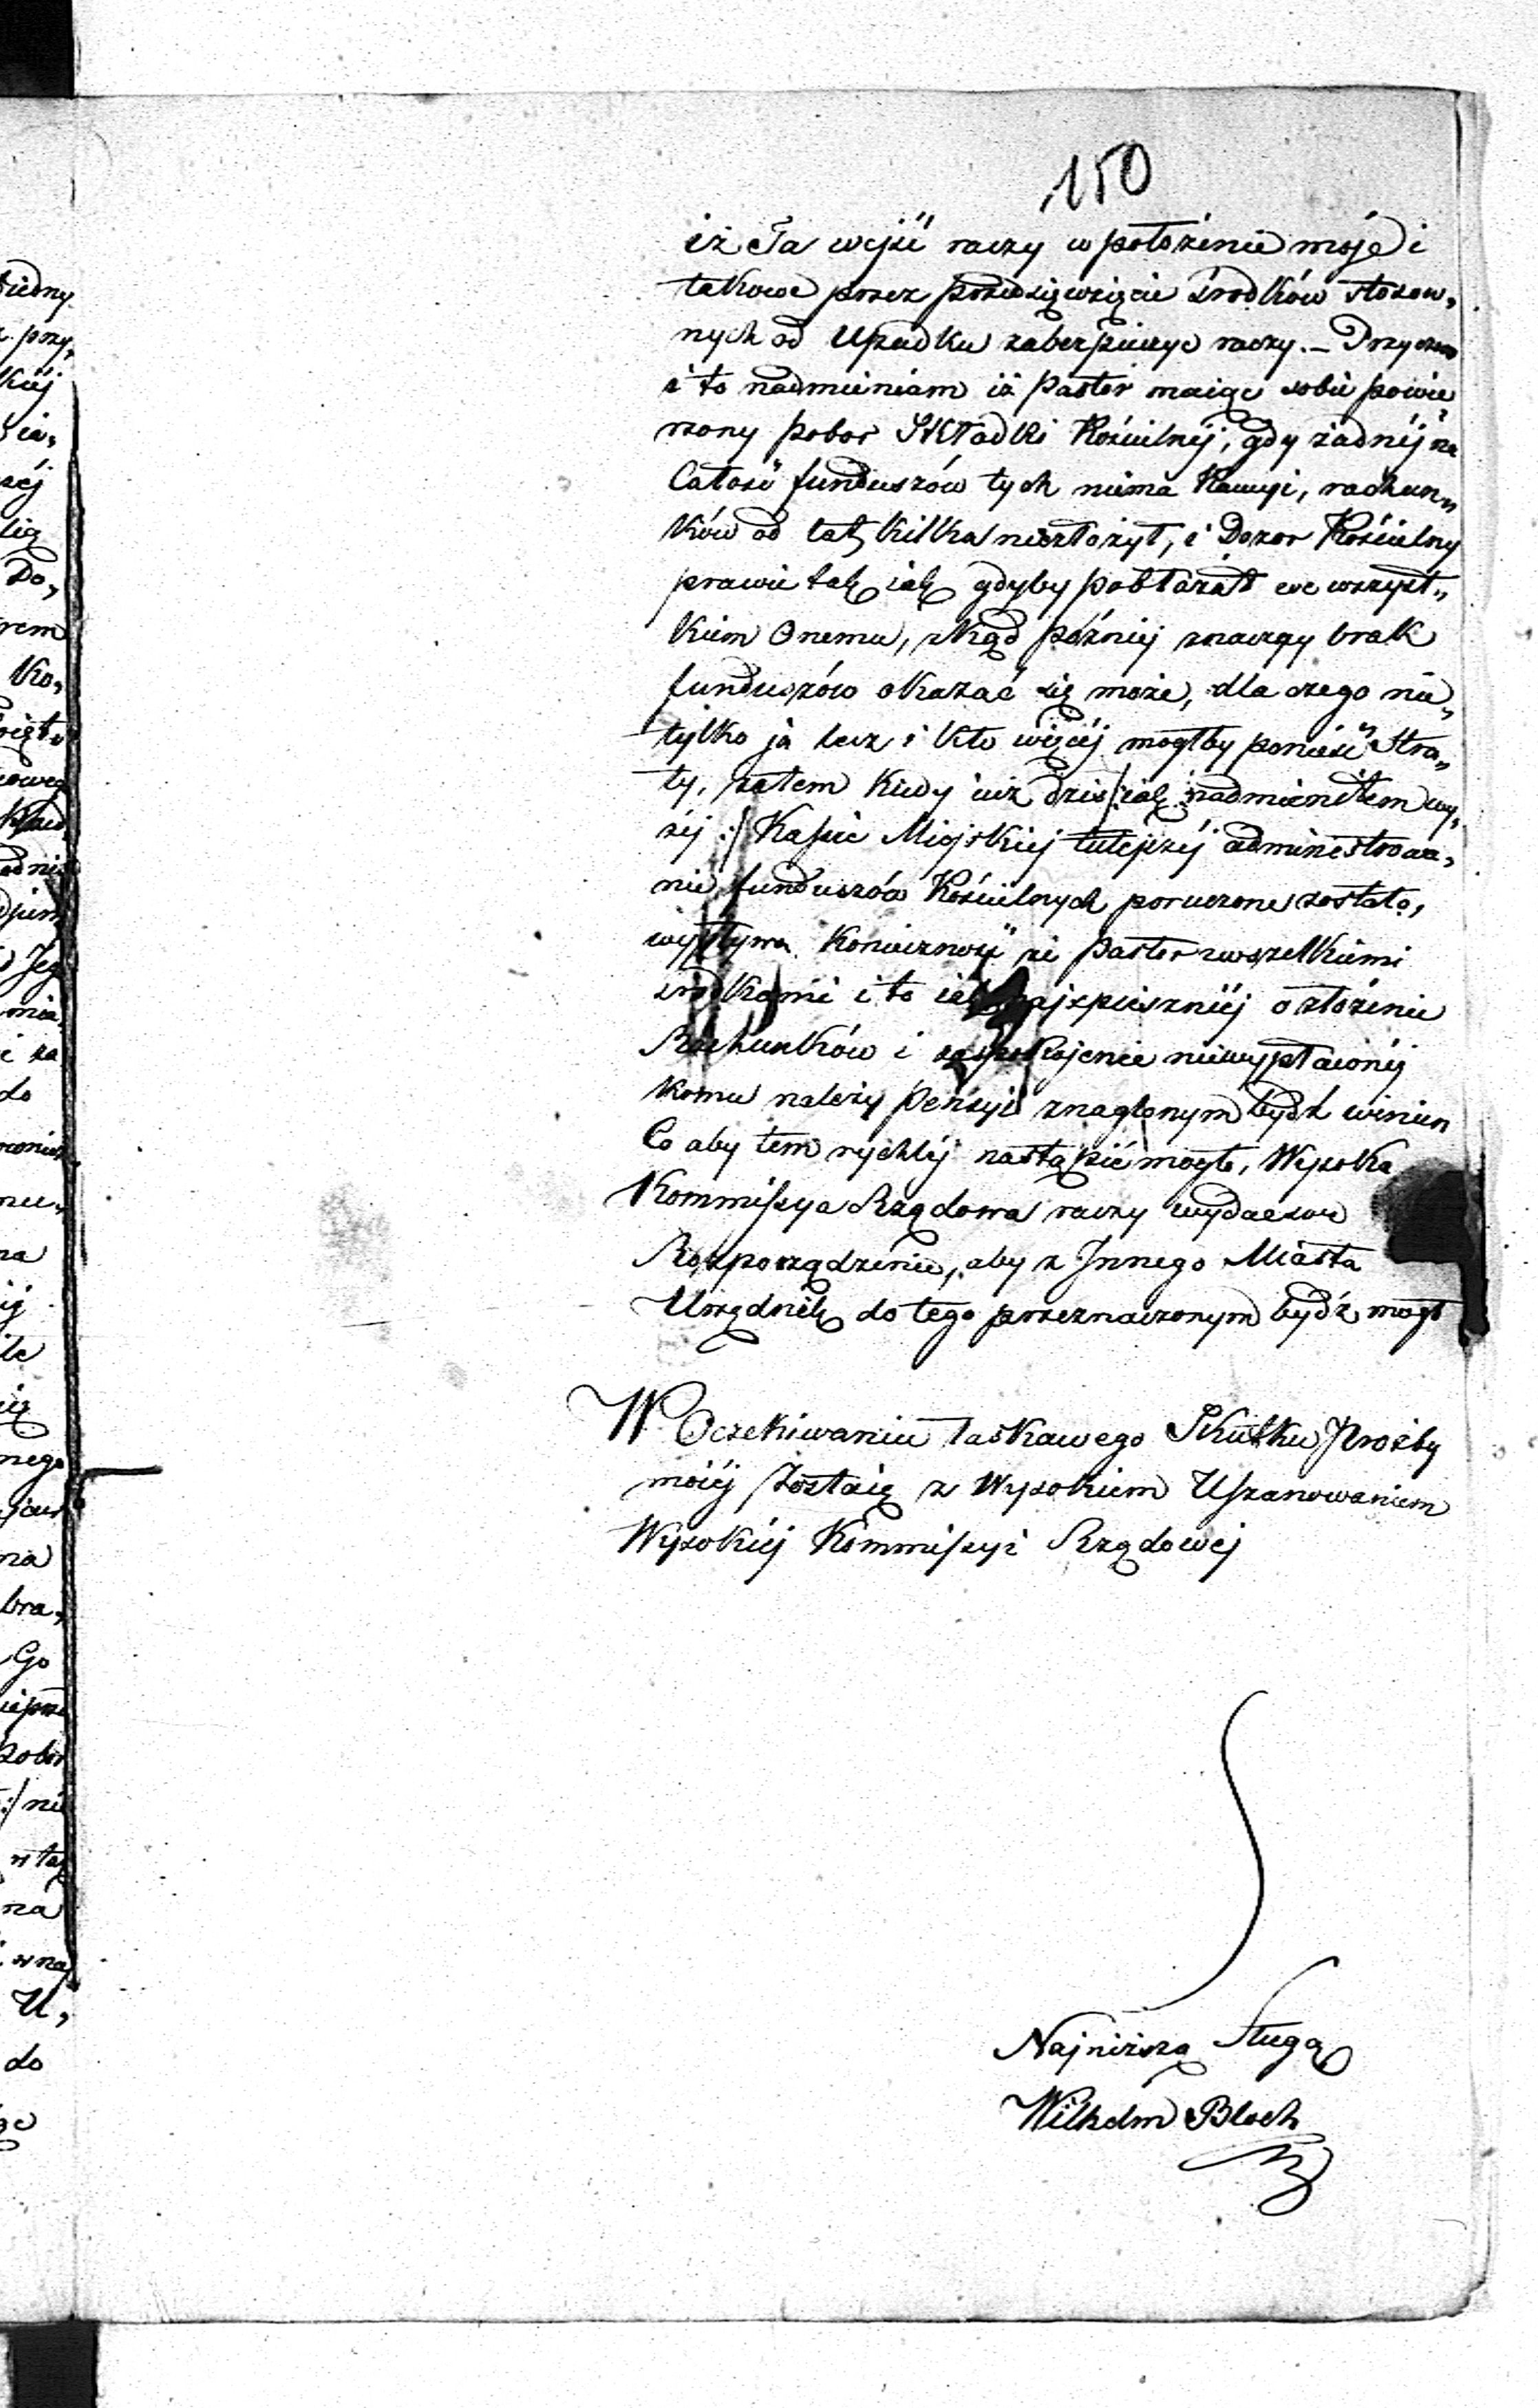 150
iż Ta wejść raczy w położenie moje i
takowe przez przedsięwzięcie środków stosow„
nych od Upadku zabezpieczyć raczy. – Przyczem
i to nadmieniam iż Pastor maiąc sobie powie„
rzony pobor Składki Kościelnéj, gdy żadnéj na
Całość funduszów tych niema Kaucyi, rachun„
ków od lat kilku niezłożył, i Dozor Kościelny
prawie tak iak gdyby pobłażał we wszyst„
kiem Onemu, zkąd późniéj znaczny brak
funduszów okazać się może, dla czego nie„
tylko ja lecz i kto więcéj mogłby ponieść Stra„
ty, zatem kiedy iuż dziś /: iak nadmieniłem wy„
żéj :/ Kassie Miejskiéj tutejszéj administrowa„
nie funduszów Kościelnych poruczone zostało,
wypływa konieczność że Pastor wszelkiemi
srodkami i to iak najspieszniéj o złożenie
Rachunków i zaspokojenie niewypłaconéj
komu należy Pensyi znaglonym bydź winien
Co aby tem rychléj nastąpić mogło, Wysoka
Kommissya Rządowa raczy wydać swe
Rozporządzenie, aby z Innego Miasta
Urzędnik do tego przeznaczonym bydź mogł
W Oczekiwaniu łaskawego Skutku Prośby
moiéj Zostaię z Wysokiem Uszanowaniem
Wysokiéj Kommissyi Rządowéj
Najniższą Sługą
Wilhelm Bloch